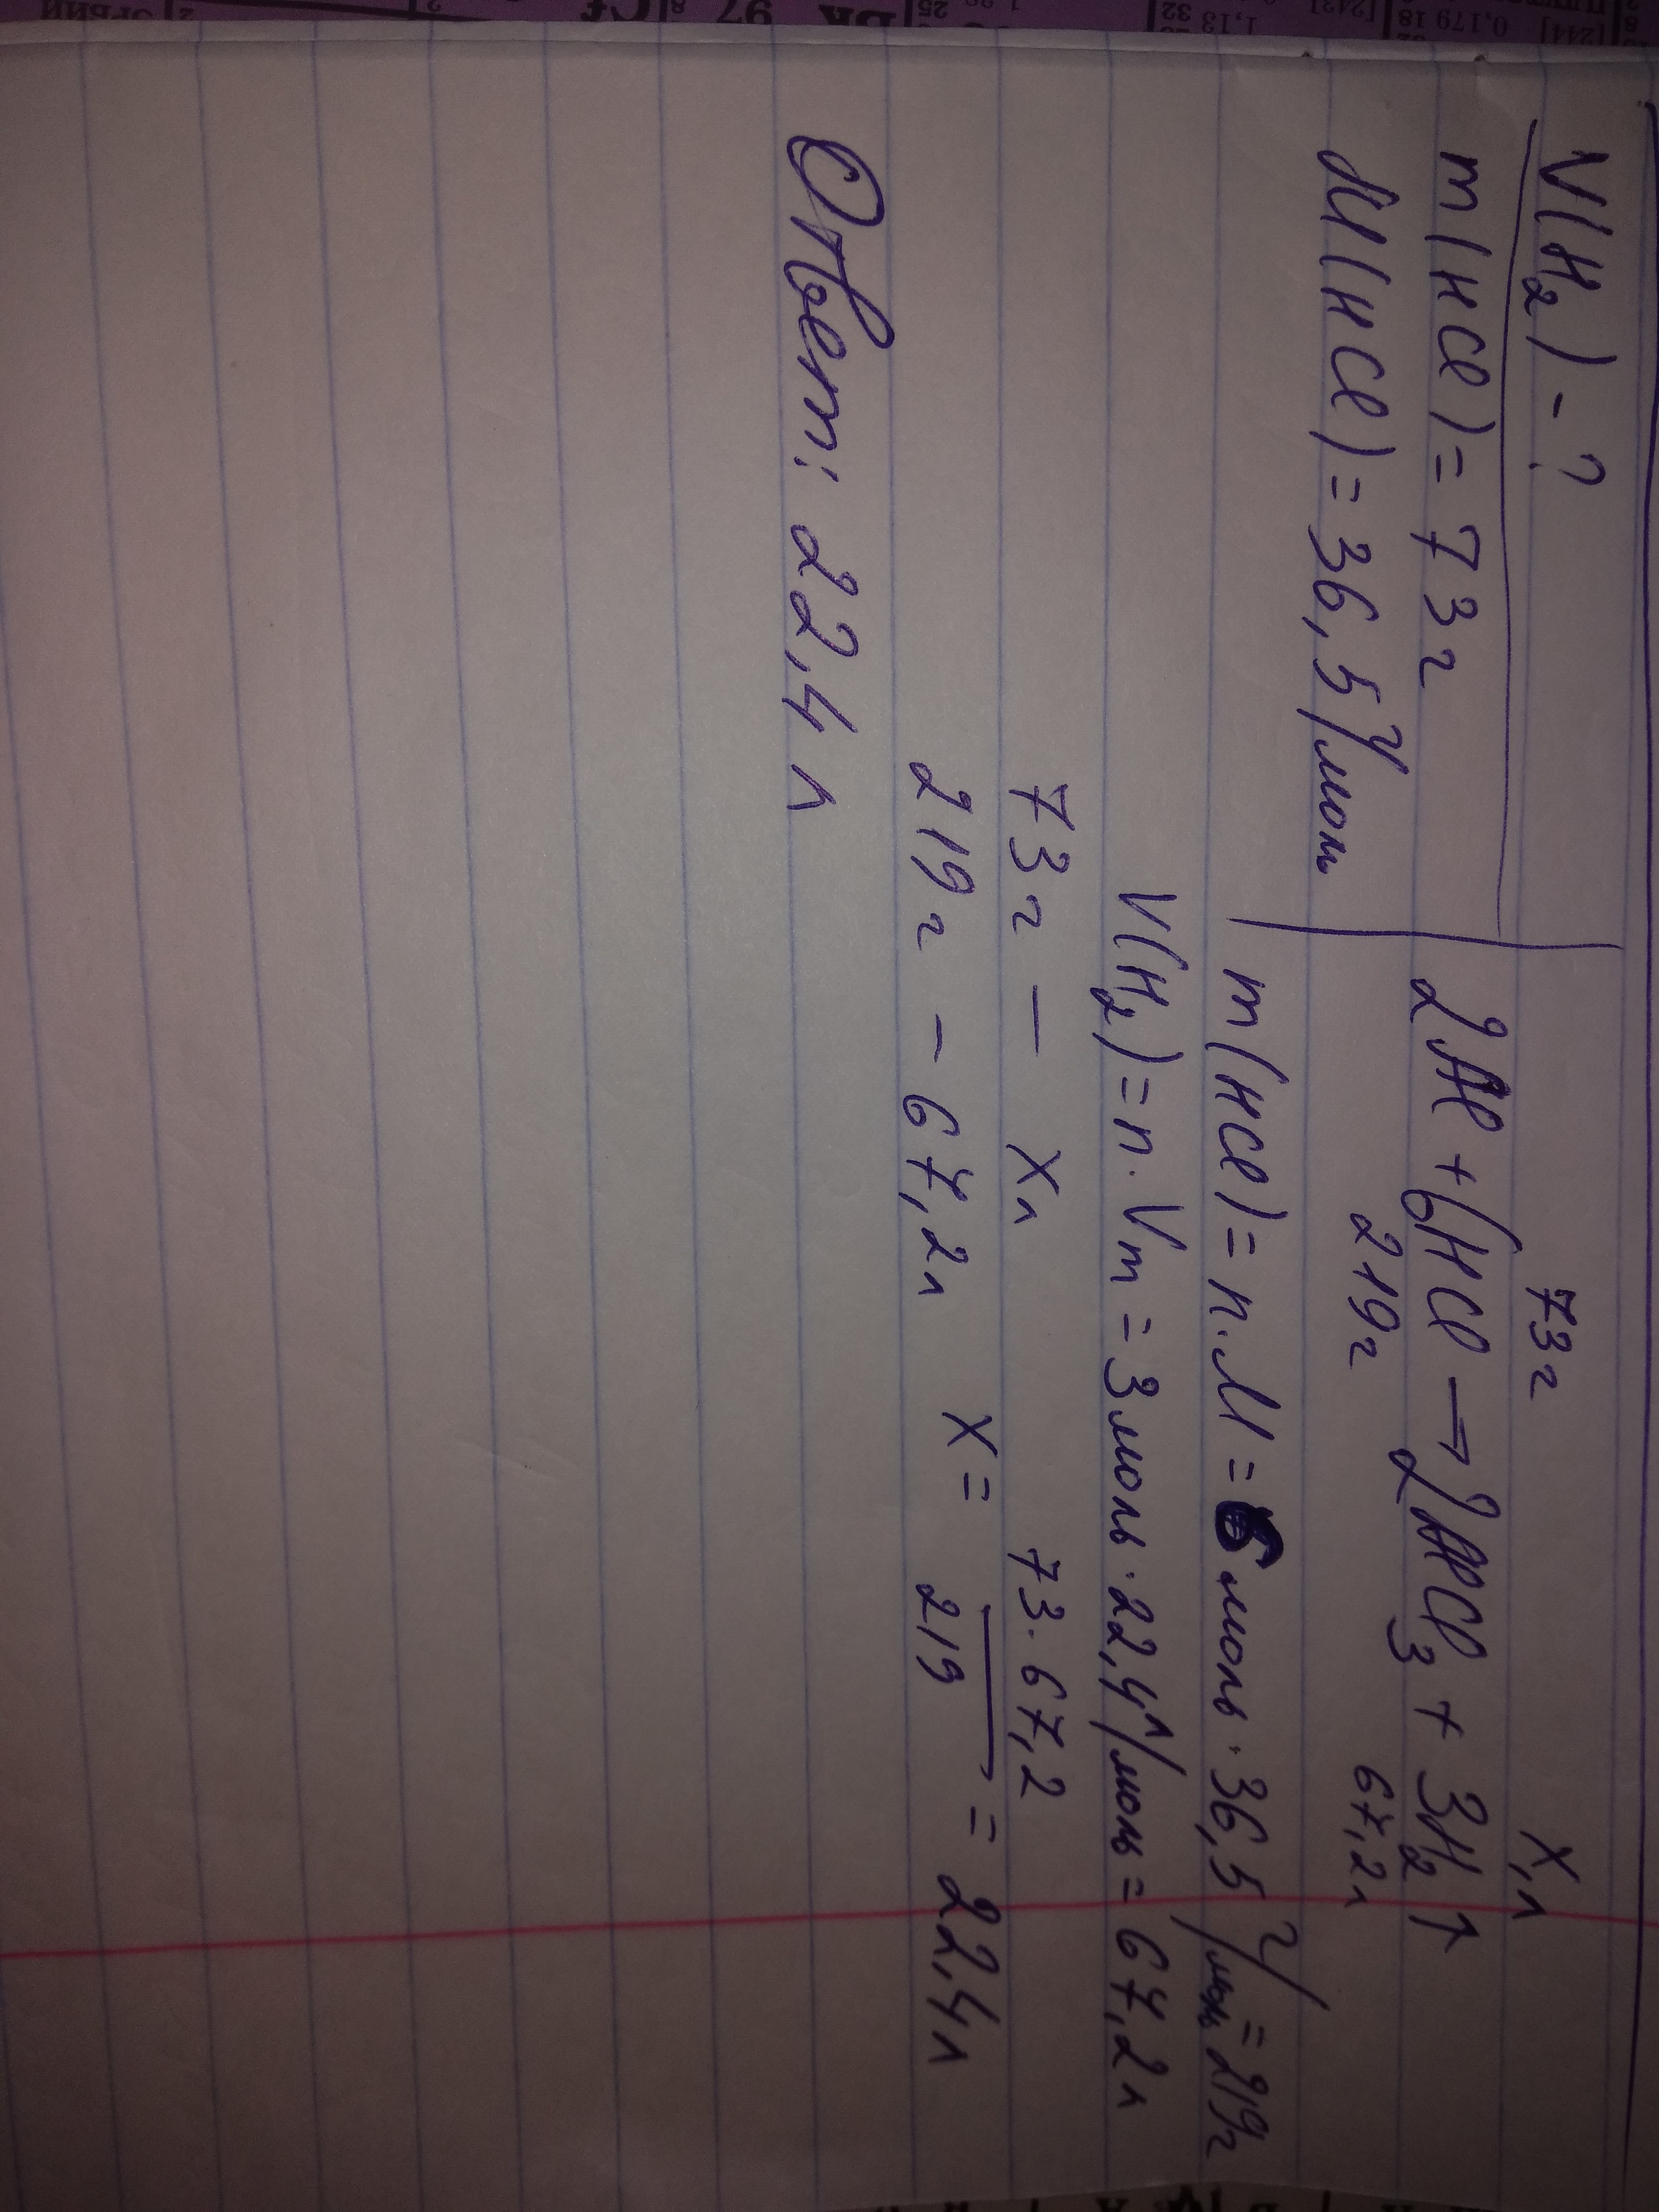 V(H₂) - ?
m(HCl) = 73г
M(HCl) = 36,5 г/моль
73г X,л
2Al + 6HCl → 2AlCl₃ + 3H₂↑
219г 67,2л
m(HCl) = n·M = 6 моль · 36,5 г/моль = 219г
V(H₂) = n·Vm = 3 моль · 22,4 л/моль = 67,2 л
73г — Xл
219г — 67,2л X = 73·67,2 / 219 = 22,4л
Ответ: 22,4 л
97
Cf
[244]
0,179 18
1,13 32
[243]
25